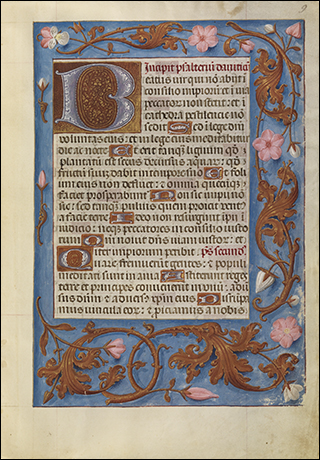 9
Incipit psalteriu dauiticu
Beatus uir qui no abijt i
consilio impioru et i uia
peccatoru no stetit: et i
cathedra pestilencie no
sedit Sed i lege dni
uoluntas eius: et in lege eius meditabitur
die ac nocte Et erit tanqua lignum qd
plantatu est secus decursus aquaru: qd
fructu suu dabit in tempore suo Et foli
um eius non defluet: et omnia quecuqz
faciet prosperabunt Non sic impij no
sic: sed tanqz puluis que proicit uentus
a facie terre Ideo non resurgunt impij i
iudicio: neqz peccatores in consilio iusto
rum Qm nouit dns uiam iustoru: et
iter impiorum peribit. ps secund
Quare fremuerunt gentes: et populi
meditati sunt inania Astiterunt reges
terre et principes conuenerunt in unu: ad
uersus dnm et aduersus xpm eius Disrupa
mus uincula eoru: et proiciamus a nobis